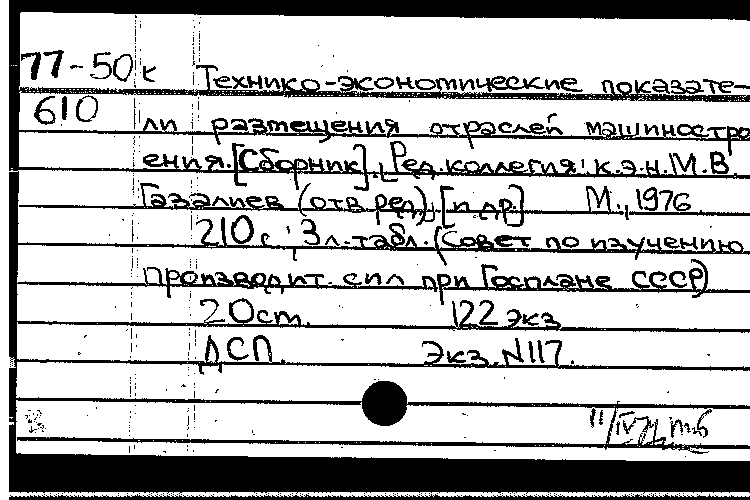 77-50к Технико-экономические показате-
610 ли размещения отраслей машиностро
ения. [Сборник]. [Ред.коллегия: к.э.н. М.В.
Газалиев (отв.ред), [и др.] М., 1976
210 с., 3 л.табл. (Совет по изучению
производит. сил при Госплане СССР)
20 ст. 122 экз
ДСП. Экз.N117.
11/IV